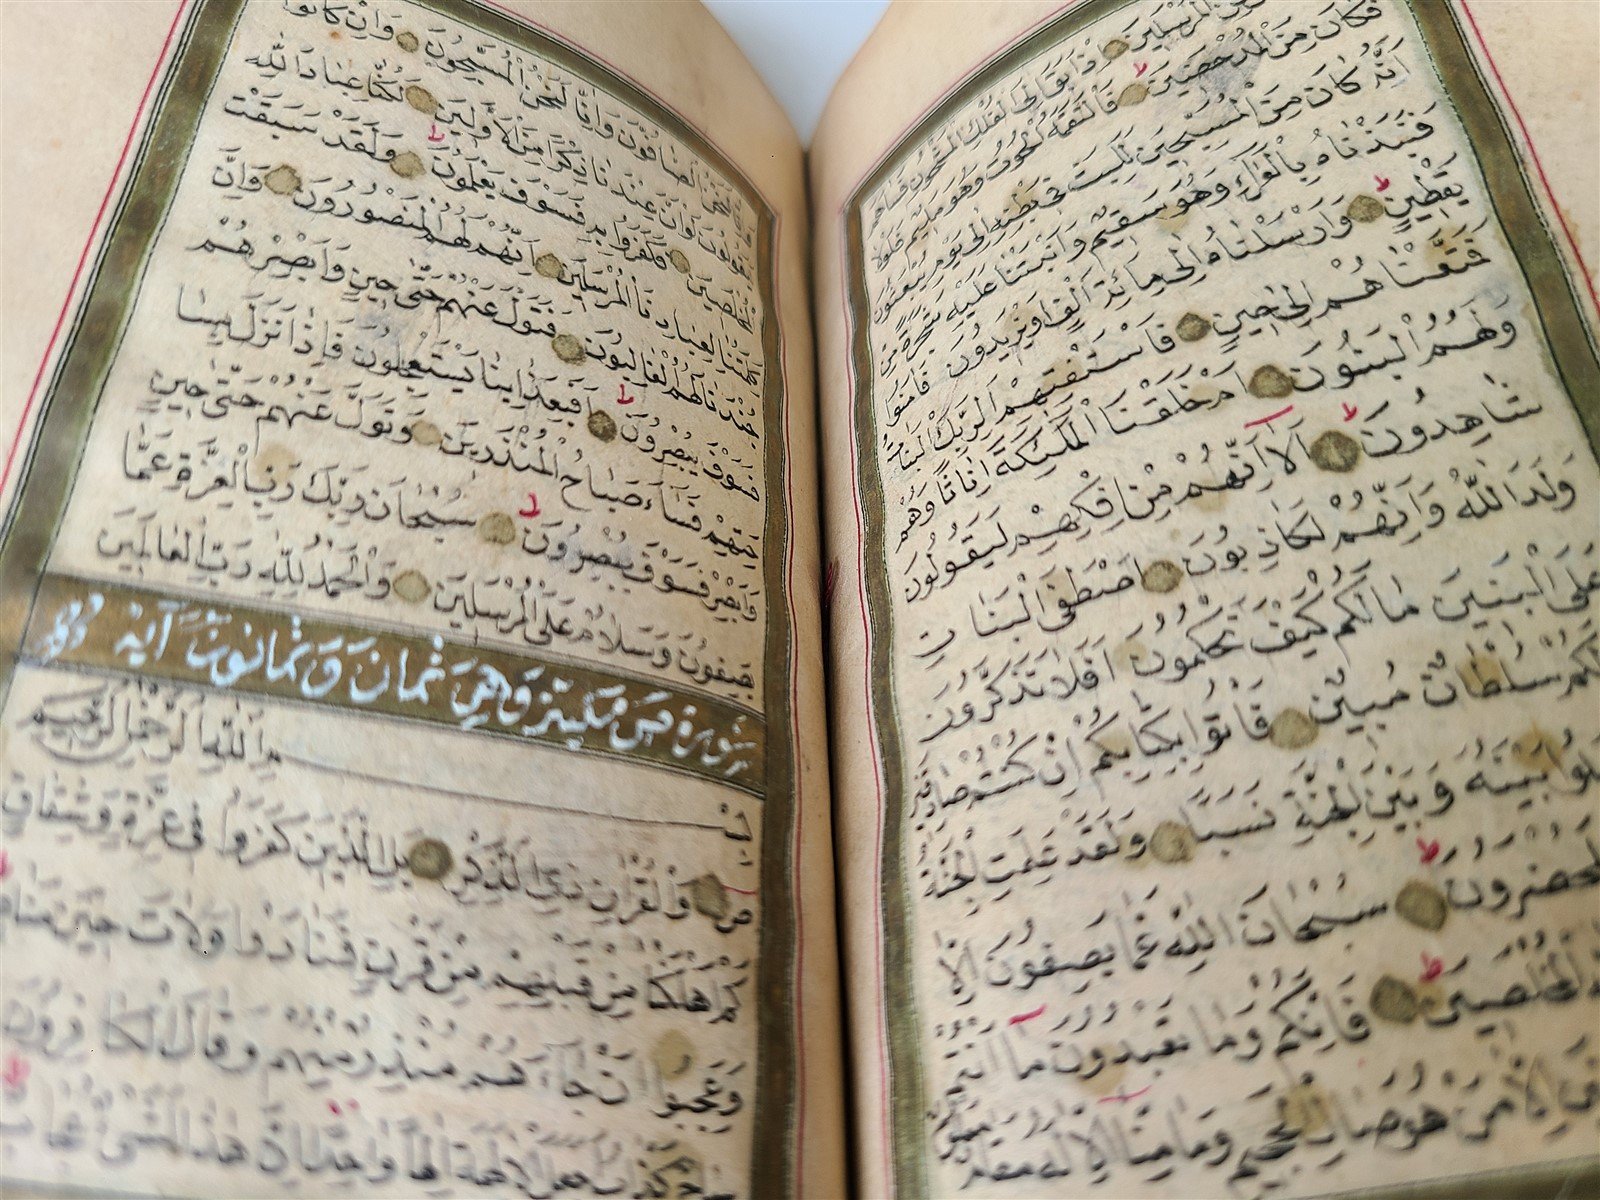 الْمُرْسَلِينَ اِذْ اَبَقَ اِلَى الْفُلْكِ الْمَشْحُونِ فَسَاهَمَ
فَكَانَ مِنَ الْمُدْحَضِينَ فَالْتَقَمَهُ الْحُوتُ وَهُوَ مُلِيمٌ فَلَوْلَا
اَنَّهُ كَانَ مِنَ الْمُسَبِّحِينَ لَلَبِثَ فِي بَطْنِهِ اِلَى يَوْمِ يُبْعَثُونَ
فَنَبَذْنَاهُ بِالْعَرَاءِ وَهُوَ سَقِيمٌ وَاَنْبَتْنَا عَلَيْهِ شَجَرَةً مِنْ
يَقْطِينٍ وَاَرْسَلْنَاهُ اِلَى مِائَةِ اَلْفٍ اَوْ يَزِيدُونَ فَاٰمَنُوا
فَمَتَّعْنَاهُمْ اِلَى حِينٍ فَاسْتَفْتِهِمْ اَلِرَبِّكَ الْبَنَاتُ
وَلَهُمُ الْبَنُونَ اَمْ خَلَقْنَا الْمَلٰئِكَةَ اِنَاثًا وَهُمْ
شَاهِدُونَ اَلَا اِنَّهُمْ مِنْ اِفْكِهِمْ لَيَقُولُونَ
وَلَدَ اللّٰهُ وَاِنَّهُمْ لَكَاذِبُونَ اَصْطَفَى الْبَنَاتِ
عَلَى الْبَنِينَ مَا لَكُمْ كَيْفَ تَحْكُمُونَ اَفَلَا تَذَكَّرُونَ
لَكُمْ سُلْطَانٌ مُبِينٌ فَاْتُوا بِكِتَابِكُمْ اِنْ كُنْتُمْ صَادِقِينَ
بَيْنَهُ وَبَيْنَ الْجِنَّةِ نَسَبًا وَلَقَدْ عَلِمَتِ الْجِنَّةُ
لَمُحْضَرُونَ سُبْحَانَ اللّٰهِ عَمَّا يَصِفُونَ اِلَّا
الْمُخْلَصِينَ فَاِنَّكُمْ وَمَا تَعْبُدُونَ مَا اَنْتُمْ
اِلَّا مَنْ هُوَ صَالِ الْجَحِيمِ وَمَا مِنَّا اِلَّا لَهُ مَقَامٌ
لَنَحْنُ الصَّافُّونَ وَاِنَّا لَنَحْنُ الْمُسَبِّحُونَ وَاِنْ كَانُوا
لَيَقُولُونَ لَوْ اَنَّ عِنْدَنَا ذِكْرًا مِنَ الْاَوَّلِينَ لَكُنَّا عِبَادَ اللّٰهِ
الْمُخْلَصِينَ فَكَفَرُوا بِهِ فَسَوْفَ يَعْلَمُونَ وَلَقَدْ سَبَقَتْ
كَلِمَتُنَا لِعِبَادِنَا الْمُرْسَلِينَ اِنَّهُمْ لَهُمُ الْمَنْصُورُونَ وَاِنَّ
جُنْدَنَا لَهُمُ الْغَالِبُونَ فَتَوَلَّ عَنْهُمْ حَتَّى حِينٍ وَاَبْصِرْهُمْ
فَسَوْفَ يُبْصِرُونَ اَفَبِعَذَابِنَا يَسْتَعْجِلُونَ فَاِذَا نَزَلَ بِسَا
حَتِهِمْ فَسَاءَ صَبَاحُ الْمُنْذَرِينَ وَتَوَلَّ عَنْهُمْ حَتَّى حِينٍ
وَاَبْصِرْ فَسَوْفَ يُبْصِرُونَ سُبْحَانَ رَبِّكَ رَبِّ الْعِزَّةِ عَمَّا
يَصِفُونَ وَسَلَامٌ عَلَى الْمُرْسَلِينَ وَالْحَمْدُ لِلّٰهِ رَبِّ الْعَالَمِينَ
سُورَةُ ص مَكِّيَّةٌ وَهِيَ ثَمَانٌ وَثَمَانُونَ آيَةً
بِسْمِ اللّٰهِ الرَّحْمٰنِ الرَّحِيمِ
ص وَالْقُرْاٰنِ ذِي الذِّكْرِ بَلِ الَّذِينَ كَفَرُوا فِي عِزَّةٍ وَشِقَاقٍ
كَمْ اَهْلَكْنَا مِنْ قَبْلِهِمْ مِنْ قَرْنٍ فَنَادَوْا وَلَاتَ حِينَ مَنَاصٍ
وَعَجِبُوا اَنْ جَاءَهُمْ مُنْذِرٌ مِنْهُمْ وَقَالَ الْكَافِرُونَ
كَذَّابٌ اَجَعَلَ الْاٰلِهَةَ اِلٰهًا وَاحِدًا اِنَّ هٰذَا لَشَيْءٌ عُجَابٌ